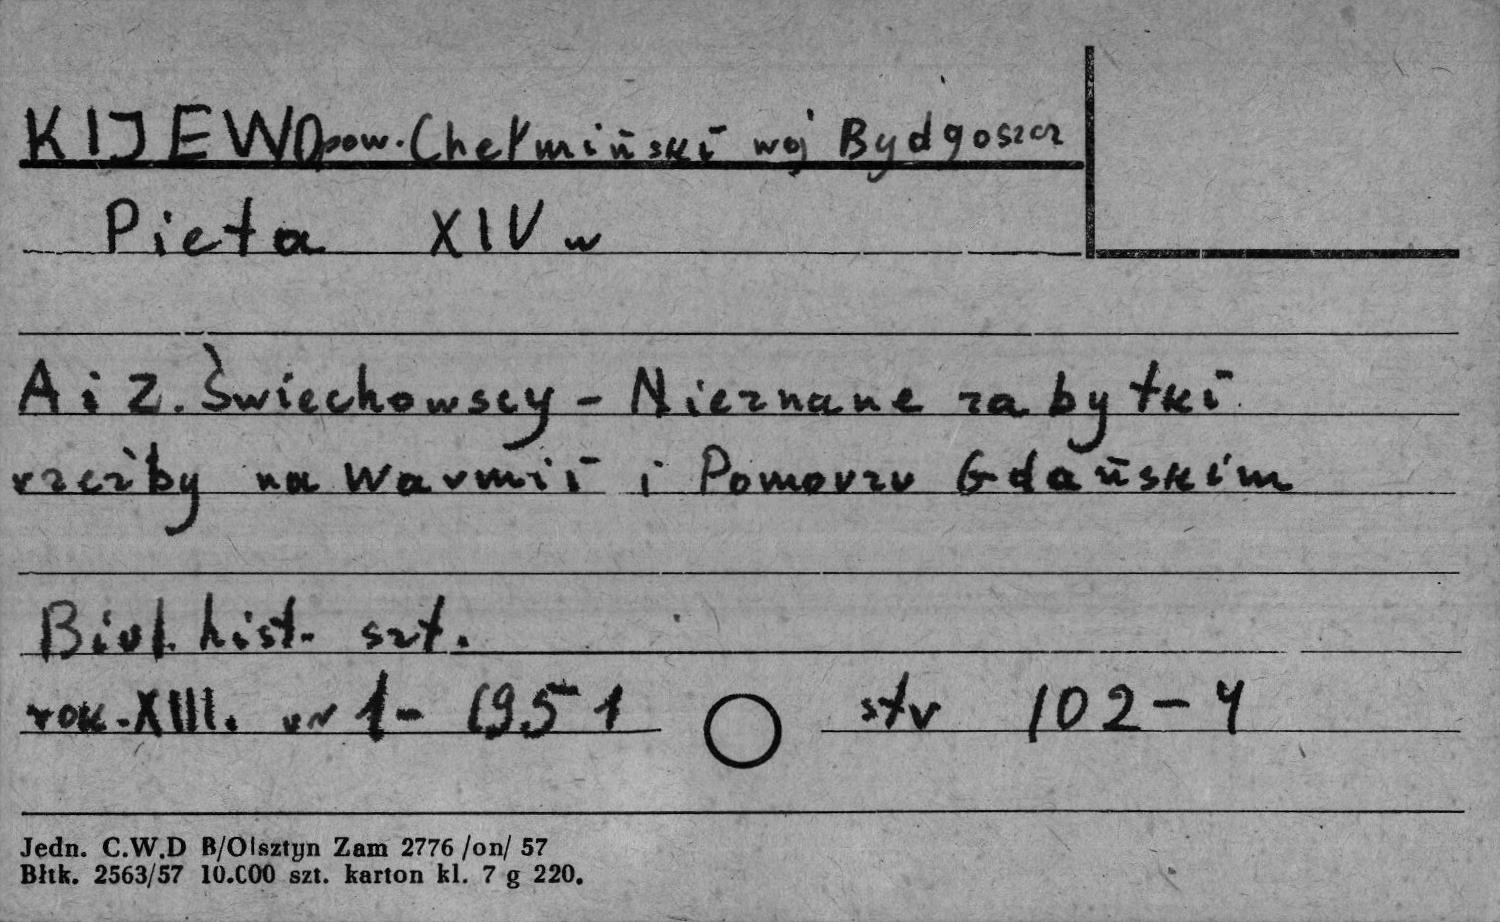 KIJEWO pow. Chełmiński woj Bydgoszcz
Pieta XIV w
A i Z. Świechowscy - Nieznane zabytki
rzeźby na Warmii i Pomorzu Gdańskim
Biul. hist. szt.
rok. XIII. nr 1 - 1951 str 102-4
Jedn. C.W.D B/Olsztyn Zam 2776 /on/ 57
Błtk. 2563/57 10.000 szt. karton kl. 7 g 220.